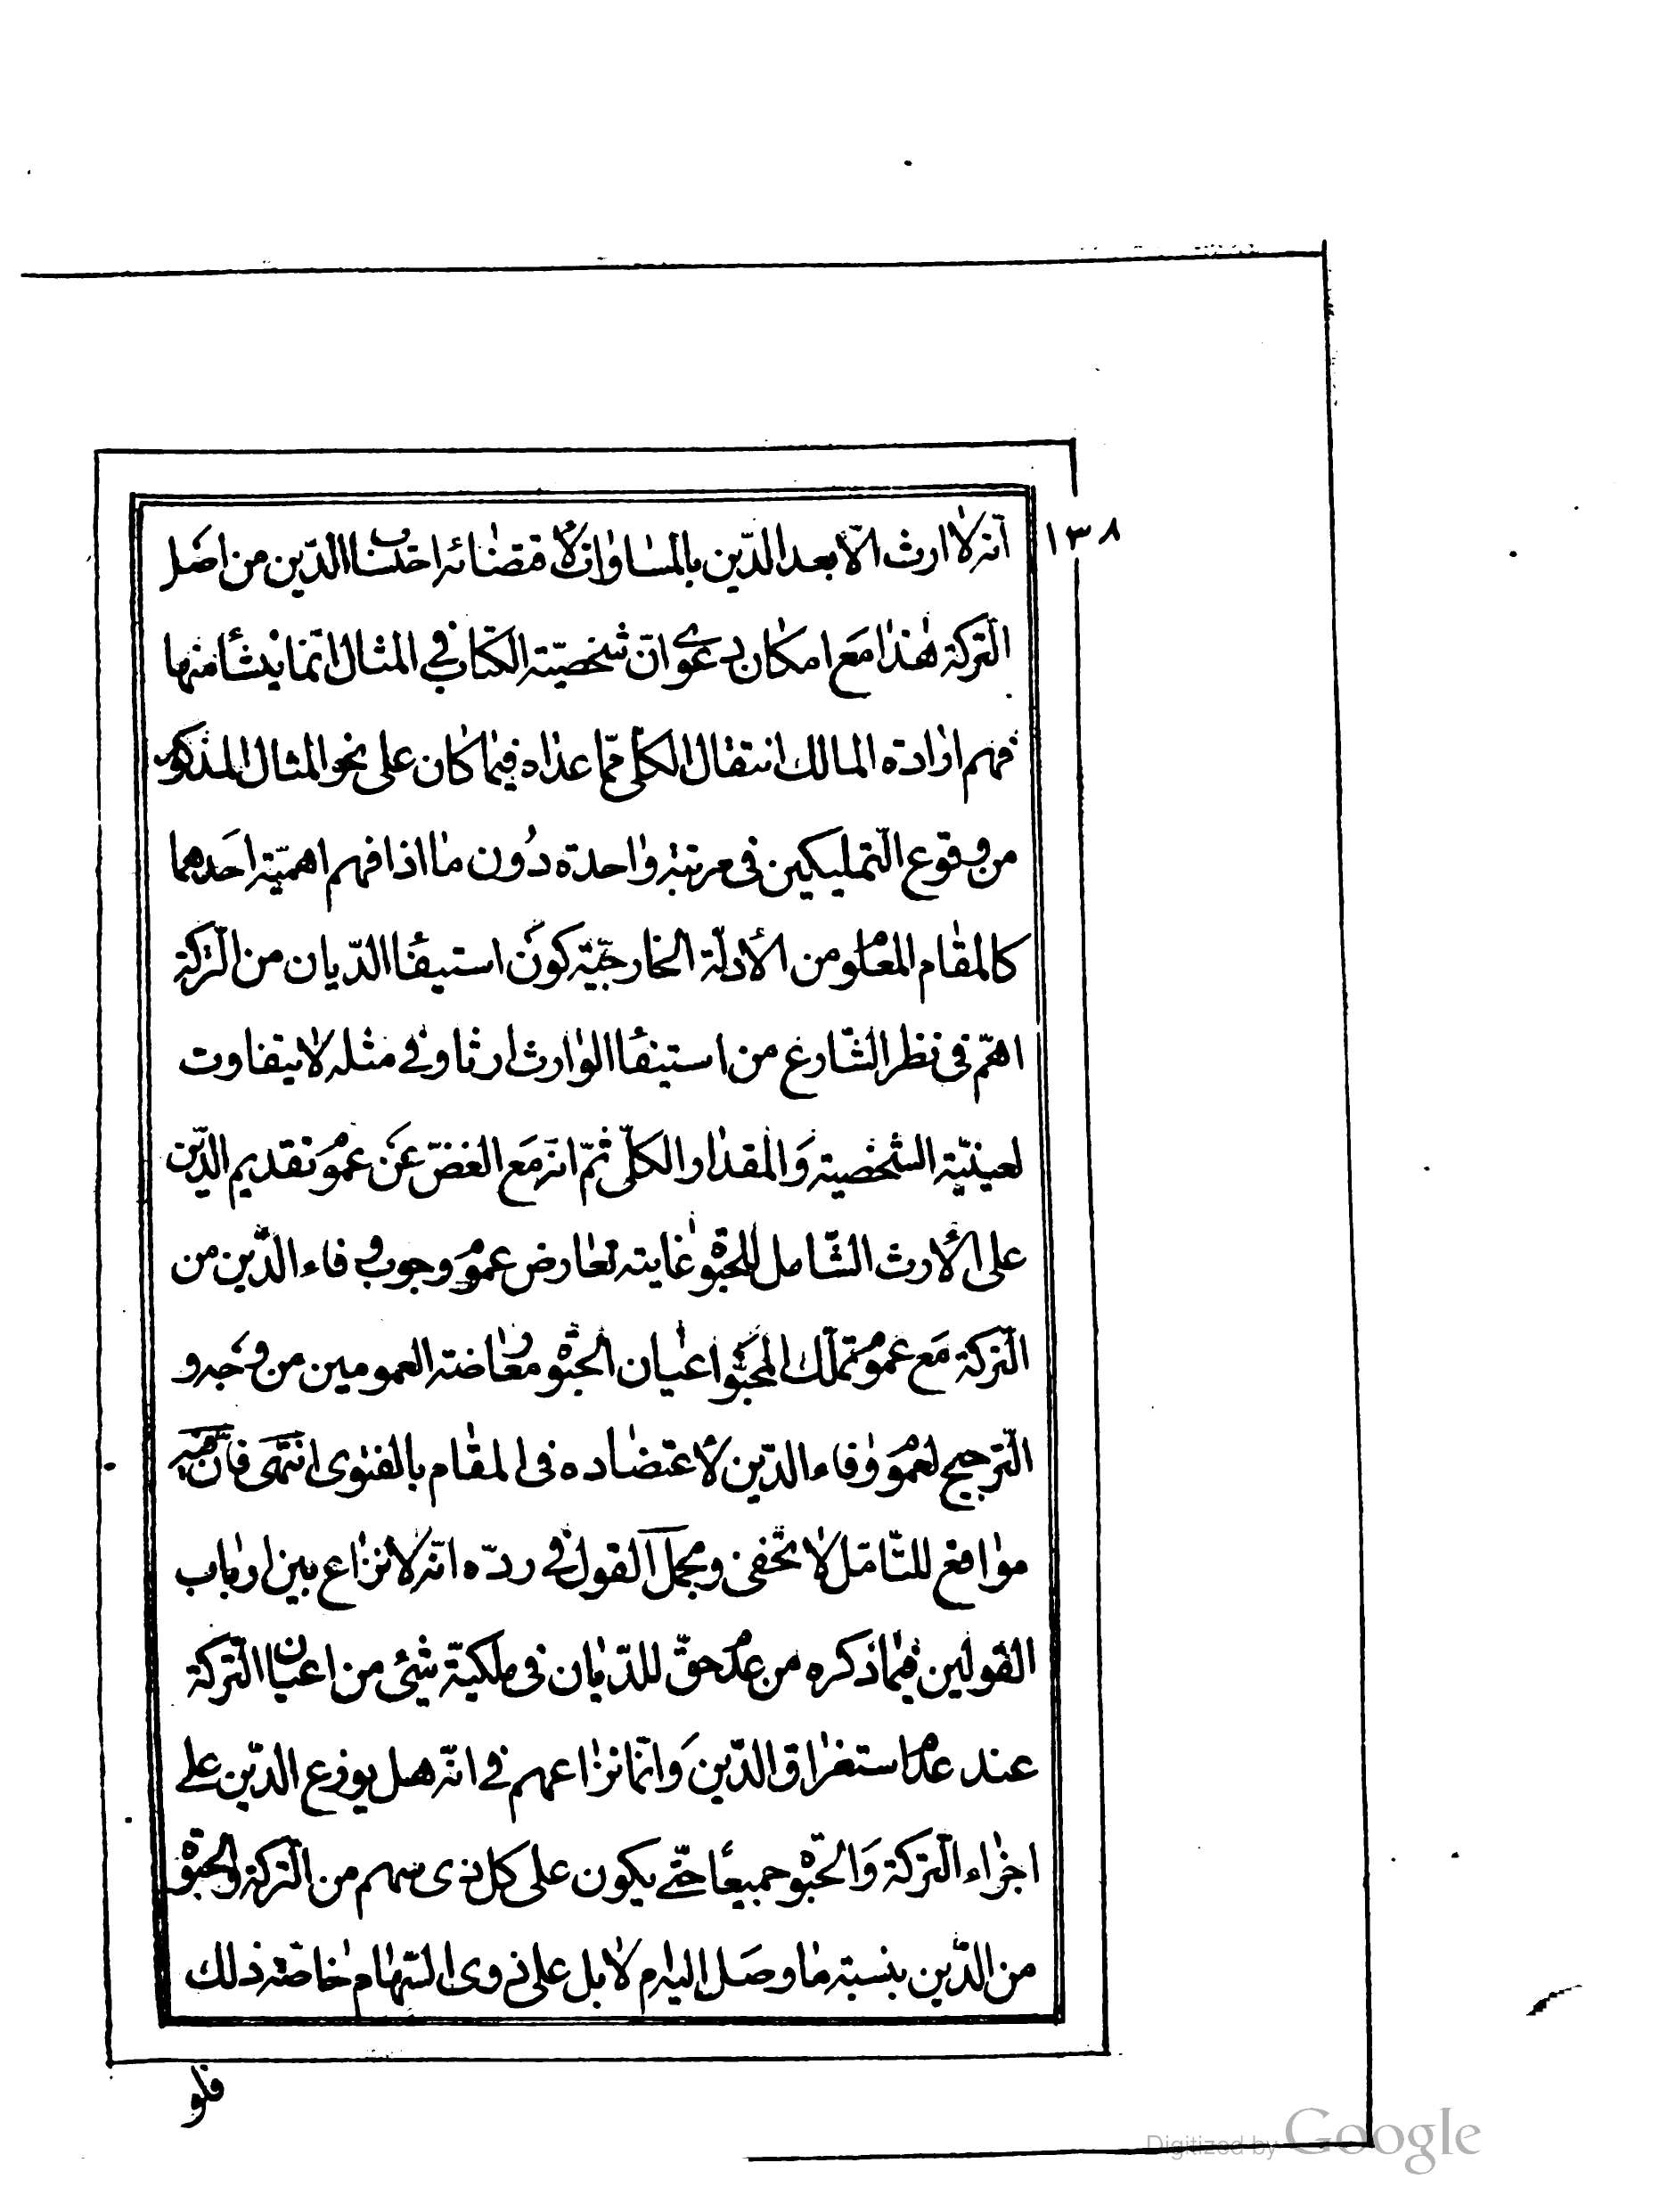 ١٣٨
انّه لا ارث الّا بعد الدّين بالمساواة لاقتضائه احتساب الدّين من اصل
التركة هذا مع امكان دعوى انّ شخصيّة الكتاب في المثال انّما ينشأ منها
فهم ارادة المالك انتقال الكلّى ممّا عداه فيما كان على نحو المثال المذكور
من وقوع التمليكين فى مرتبة واحدة دون ما اذا فهم اهميّة احدهما
كالمقام المعلوم من الأدلّة الخارجيّة كون استيفاء الديان من التركة
اهمّ فى نظر الشّارع من استيفاء الوارث ارثا وفي مثله لا يتفاوت
لعينيّة الشخصية والمقدار الكلّى ثمّ انّه مع الغضّ عن عموم تقديم الدّين
على الأرث الشّامل للحبوة غايته تعارض عموم وجوب وفاء الدّين من
التركة مع عموم تملّك المحبوّ اعيان الحبوة معاضة العمومين من وجه و
الترجيح لعموم وفاء الدّين لأعتضاده فى المقام بالفتوى انتهى فانّ فيه
مواقع للتّأمّل لا تخفى ومجمل القول في ردّه انّه لا نزاع بين ارباب
القولين فيما ذكره من عدم حقّ للدّيان فى ملكيّة شيئ من اعيان التركة
عند عدم استغراق الدّين وانّما نزاعهم في انّه هل يوزع الدّين على
اجزاء التركة والحبوة جميعًا حتّى يكون على كل ذى سهم من التركة والحبوة
من الدّين بنسبة ما وصل اليه ام لا بل على ذوى السّهام خاصّة ذلك
فلو
Digitized by Google